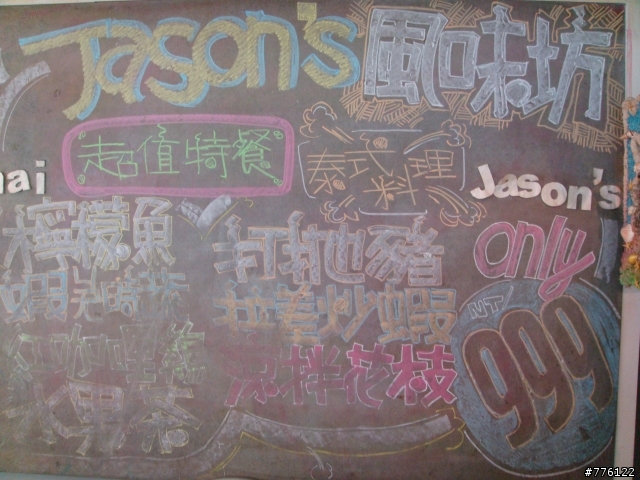 Jason's 風味坊
超值特餐
泰式料理
nai
Jason's
檸檬魚
打拋豬
only
蝦
炒蝦
NT/
999
涼拌花枝
水果茶
#776122